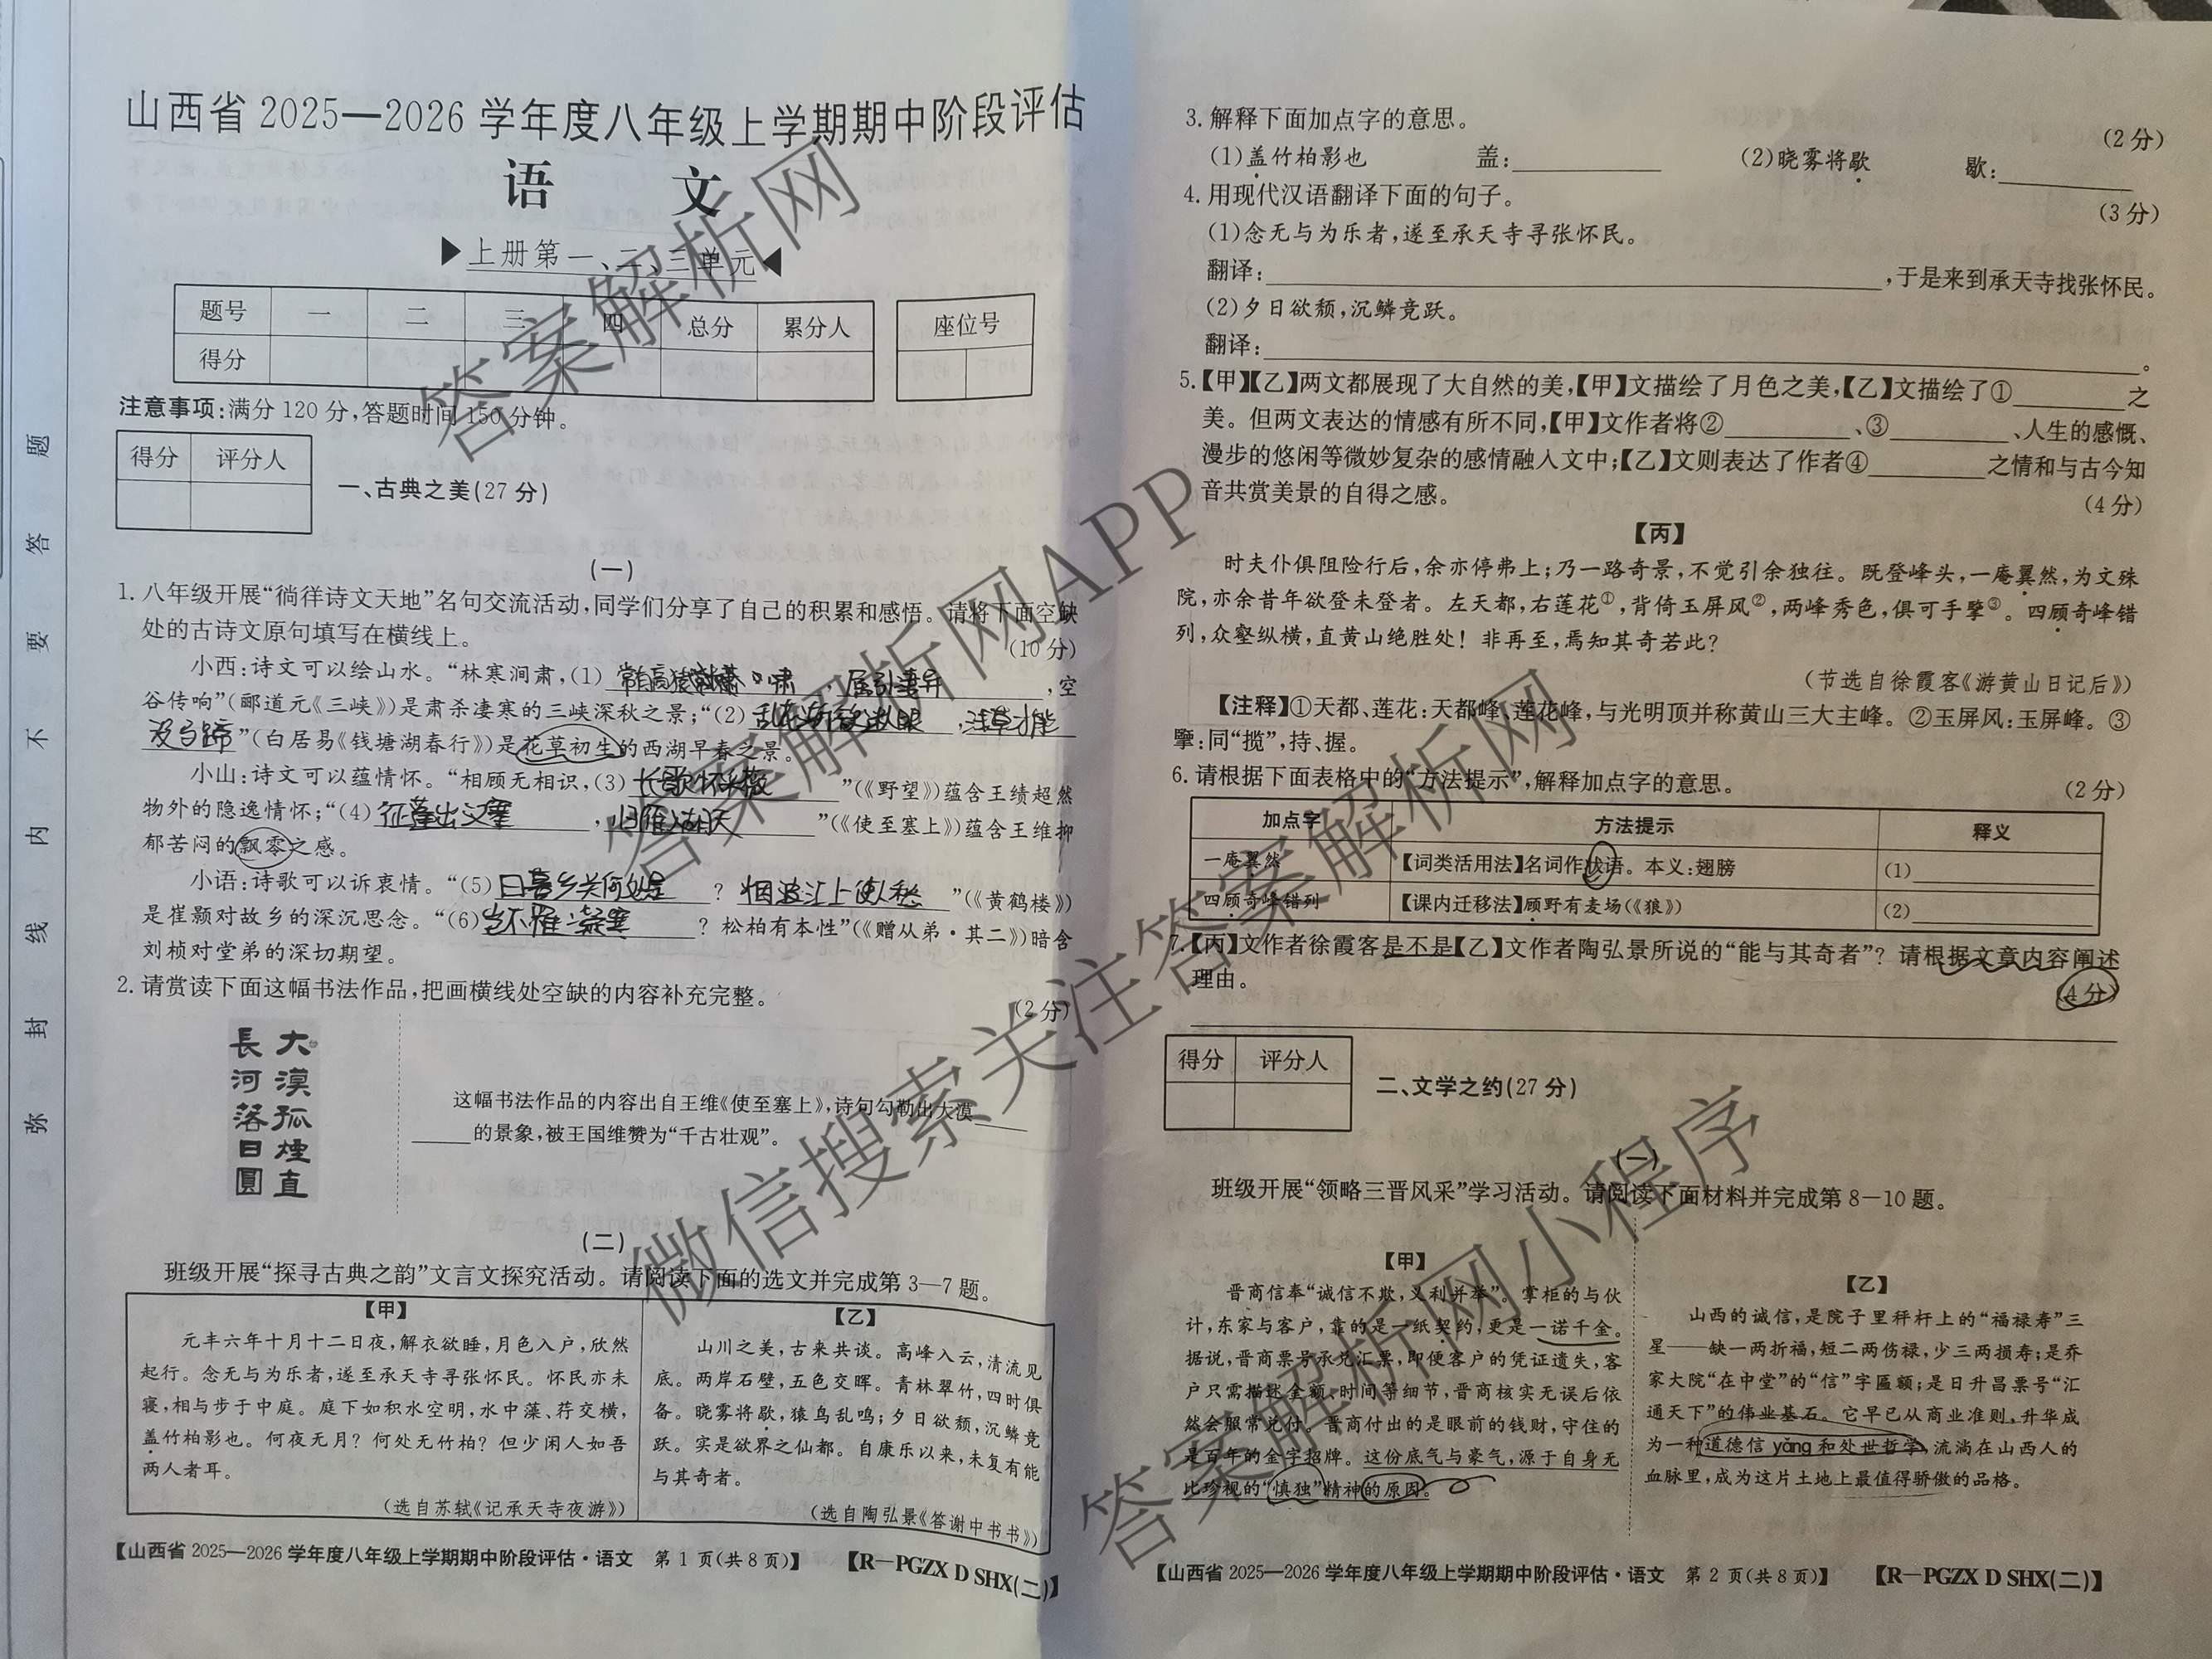 山西省2025—2026学年度八年级上学期期中阶段评估
语 文
▶上册第一、二、三单元◀
题号 一 二 三 四 总分 累分人 座位号
得分
注意事项:满分120分,答题时间150分钟。
得分 评分人
一、古典之美(27分)
(一)
1.八年级开展“徜徉诗文天地”名句交流活动,同学们分享了自己的积累和感悟。请将下面空缺
处的古诗文原句填写在横线上。 (10分)
小西:诗文可以绘山水。“林寒涧肃,(1)常有高猿长啸,属引凄异,空
谷传响”(郦道元《三峡》)是肃杀凄寒的三峡深秋之景;“(2)乱花渐欲迷人眼,浅草才能
没马蹄”(白居易《钱塘湖春行》)是花草初生的西湖早春之景。
小山:诗文可以蕴情怀。“相顾无相识,(3)长歌怀采薇”(《野望》)蕴含王绩超然
物外的隐逸情怀;“(4)征蓬出汉塞,归雁入胡天”(《使至塞上》)蕴含王维抑
郁苦闷的飘零之感。
小语:诗歌可以诉衷情。“(5)日暮乡关何处是?烟波江上使人愁”(《黄鹤楼》)
是崔颢对故乡的深沉思念。“(6)岂不罹凝寒?松柏有本性”(《赠从弟·其二》)暗含
刘桢对堂弟的深切期望。
2.请赏读下面这幅书法作品,把画横线处空缺的内容补充完整。 (2分)
大漠孤煙直
長河落日圓
这幅书法作品的内容出自王维《使至塞上》,诗句勾勒出大漠____
____的景象,被王国维赞为“千古壮观”。
(二)
班级开展“探寻古典之韵”文言文探究活动。请阅读下面的选文并完成第3—7题。
【甲】
元丰六年十月十二日夜,解衣欲睡,月色入户,欣然
起行。念无与为乐者,遂至承天寺寻张怀民。怀民亦未
寝,相与步于中庭。庭下如积水空明,水中藻、荇交横,
盖竹柏影也。何夜无月?何处无竹柏?但少闲人如吾
两人者耳。
(选自苏轼《记承天寺夜游》)
【乙】
山川之美,古来共谈。高峰入云,清流见
底。两岸石壁,五色交晖。青林翠竹,四时俱
备。晓雾将歇,猿鸟乱鸣;夕日欲颓,沉鳞竞
跃。实是欲界之仙都。自康乐以来,未复有能
与其奇者。
(选自陶弘景《答谢中书书》)
【山西省2025—2026学年度八年级上学期期中阶段评估·语文 第1页(共8页)】 【R－PGZX D SHX(二)】
弥 封 线 内 不 要 答 题
3.解释下面加点字的意思。 (2分)
(1)盖竹柏影也 盖:____ (2)晓雾将歇 歇:____
4.用现代汉语翻译下面的句子。 (3分)
(1)念无与为乐者,遂至承天寺寻张怀民。
翻译:____,于是来到承天寺找张怀民。
(2)夕日欲颓,沉鳞竞跃。
翻译:____。
5.【甲】【乙】两文都展现了大自然的美,【甲】文描绘了月色之美,【乙】文描绘了①____之
美。但两文表达的情感有所不同,【甲】文作者将②____、③____、人生的感慨、
漫步的悠闲等微妙复杂的感情融入文中;【乙】文则表达了作者④____之情和与古今知
音共赏美景的自得之感。 (4分)
【丙】
时夫仆俱阻险行后,余亦停弗上;乃一路奇景,不觉引余独往。既登峰头,一庵翼然,为文殊
院,亦余昔年欲登未登者。左天都,右莲花①,背倚玉屏风②,两峰秀色,俱可手擥③。四顾奇峰错
列,众壑纵横,直黄山绝胜处!非再至,焉知其奇若此?
(节选自徐霞客《游黄山日记后》)
【注释】①天都、莲花:天都峰、莲花峰,与光明顶并称黄山三大主峰。②玉屏风:玉屏峰。③
擥:同“揽”,持、握。
6.请根据下面表格中的“方法提示”,解释加点字的意思。 (2分)
加点字 方法提示 释义
一庵翼然 【词类活用法】名词作状语。本义:翅膀 (1)____
四顾奇峰错列 【课内迁移法】顾野有麦场(《狼》) (2)____
7.【丙】文作者徐霞客是不是【乙】文作者陶弘景所说的“能与其奇者”?请根据文章内容阐述
理由。 (4分)
得分 评分人
二、文学之约(27分)
(一)
班级开展“领略三晋风采”学习活动。请阅读下面材料并完成第8－10题。
【甲】
晋商信奉“诚信不欺,义利并举”。掌柜的与伙
计,东家与客户,靠的是一纸契约,更是一诺千金。
据说,晋商票号承兑汇票,即便客户的凭证遗失,客
户只需描述金额、时间等细节,晋商核实无误后依
然会照常兑付。晋商付出的是眼前的钱财,守住的
是百年的金字招牌。这份底气与豪气,源于自身无
比珍视的“慎独”精神的原因。
【乙】
山西的诚信,是院子里秤杆上的“福禄寿”三
星——缺一两折福,短二两伤禄,少三两损寿;是乔
家大院“在中堂”的“信”字匾额;是日升昌票号“汇
通天下”的伟业基石。它早已从商业准则,升华成
为一种道德信yǎng和处世哲学,流淌在山西人的
血脉里,成为这片土地上最值得骄傲的品格。
【山西省2025—2026学年度八年级上学期期中阶段评估·语文 第2页(共8页)】 【R－PGZX D SHX(二)】
答案解析网
答案解析网APP
微信搜索关注答案解析网
答案解析网小程序